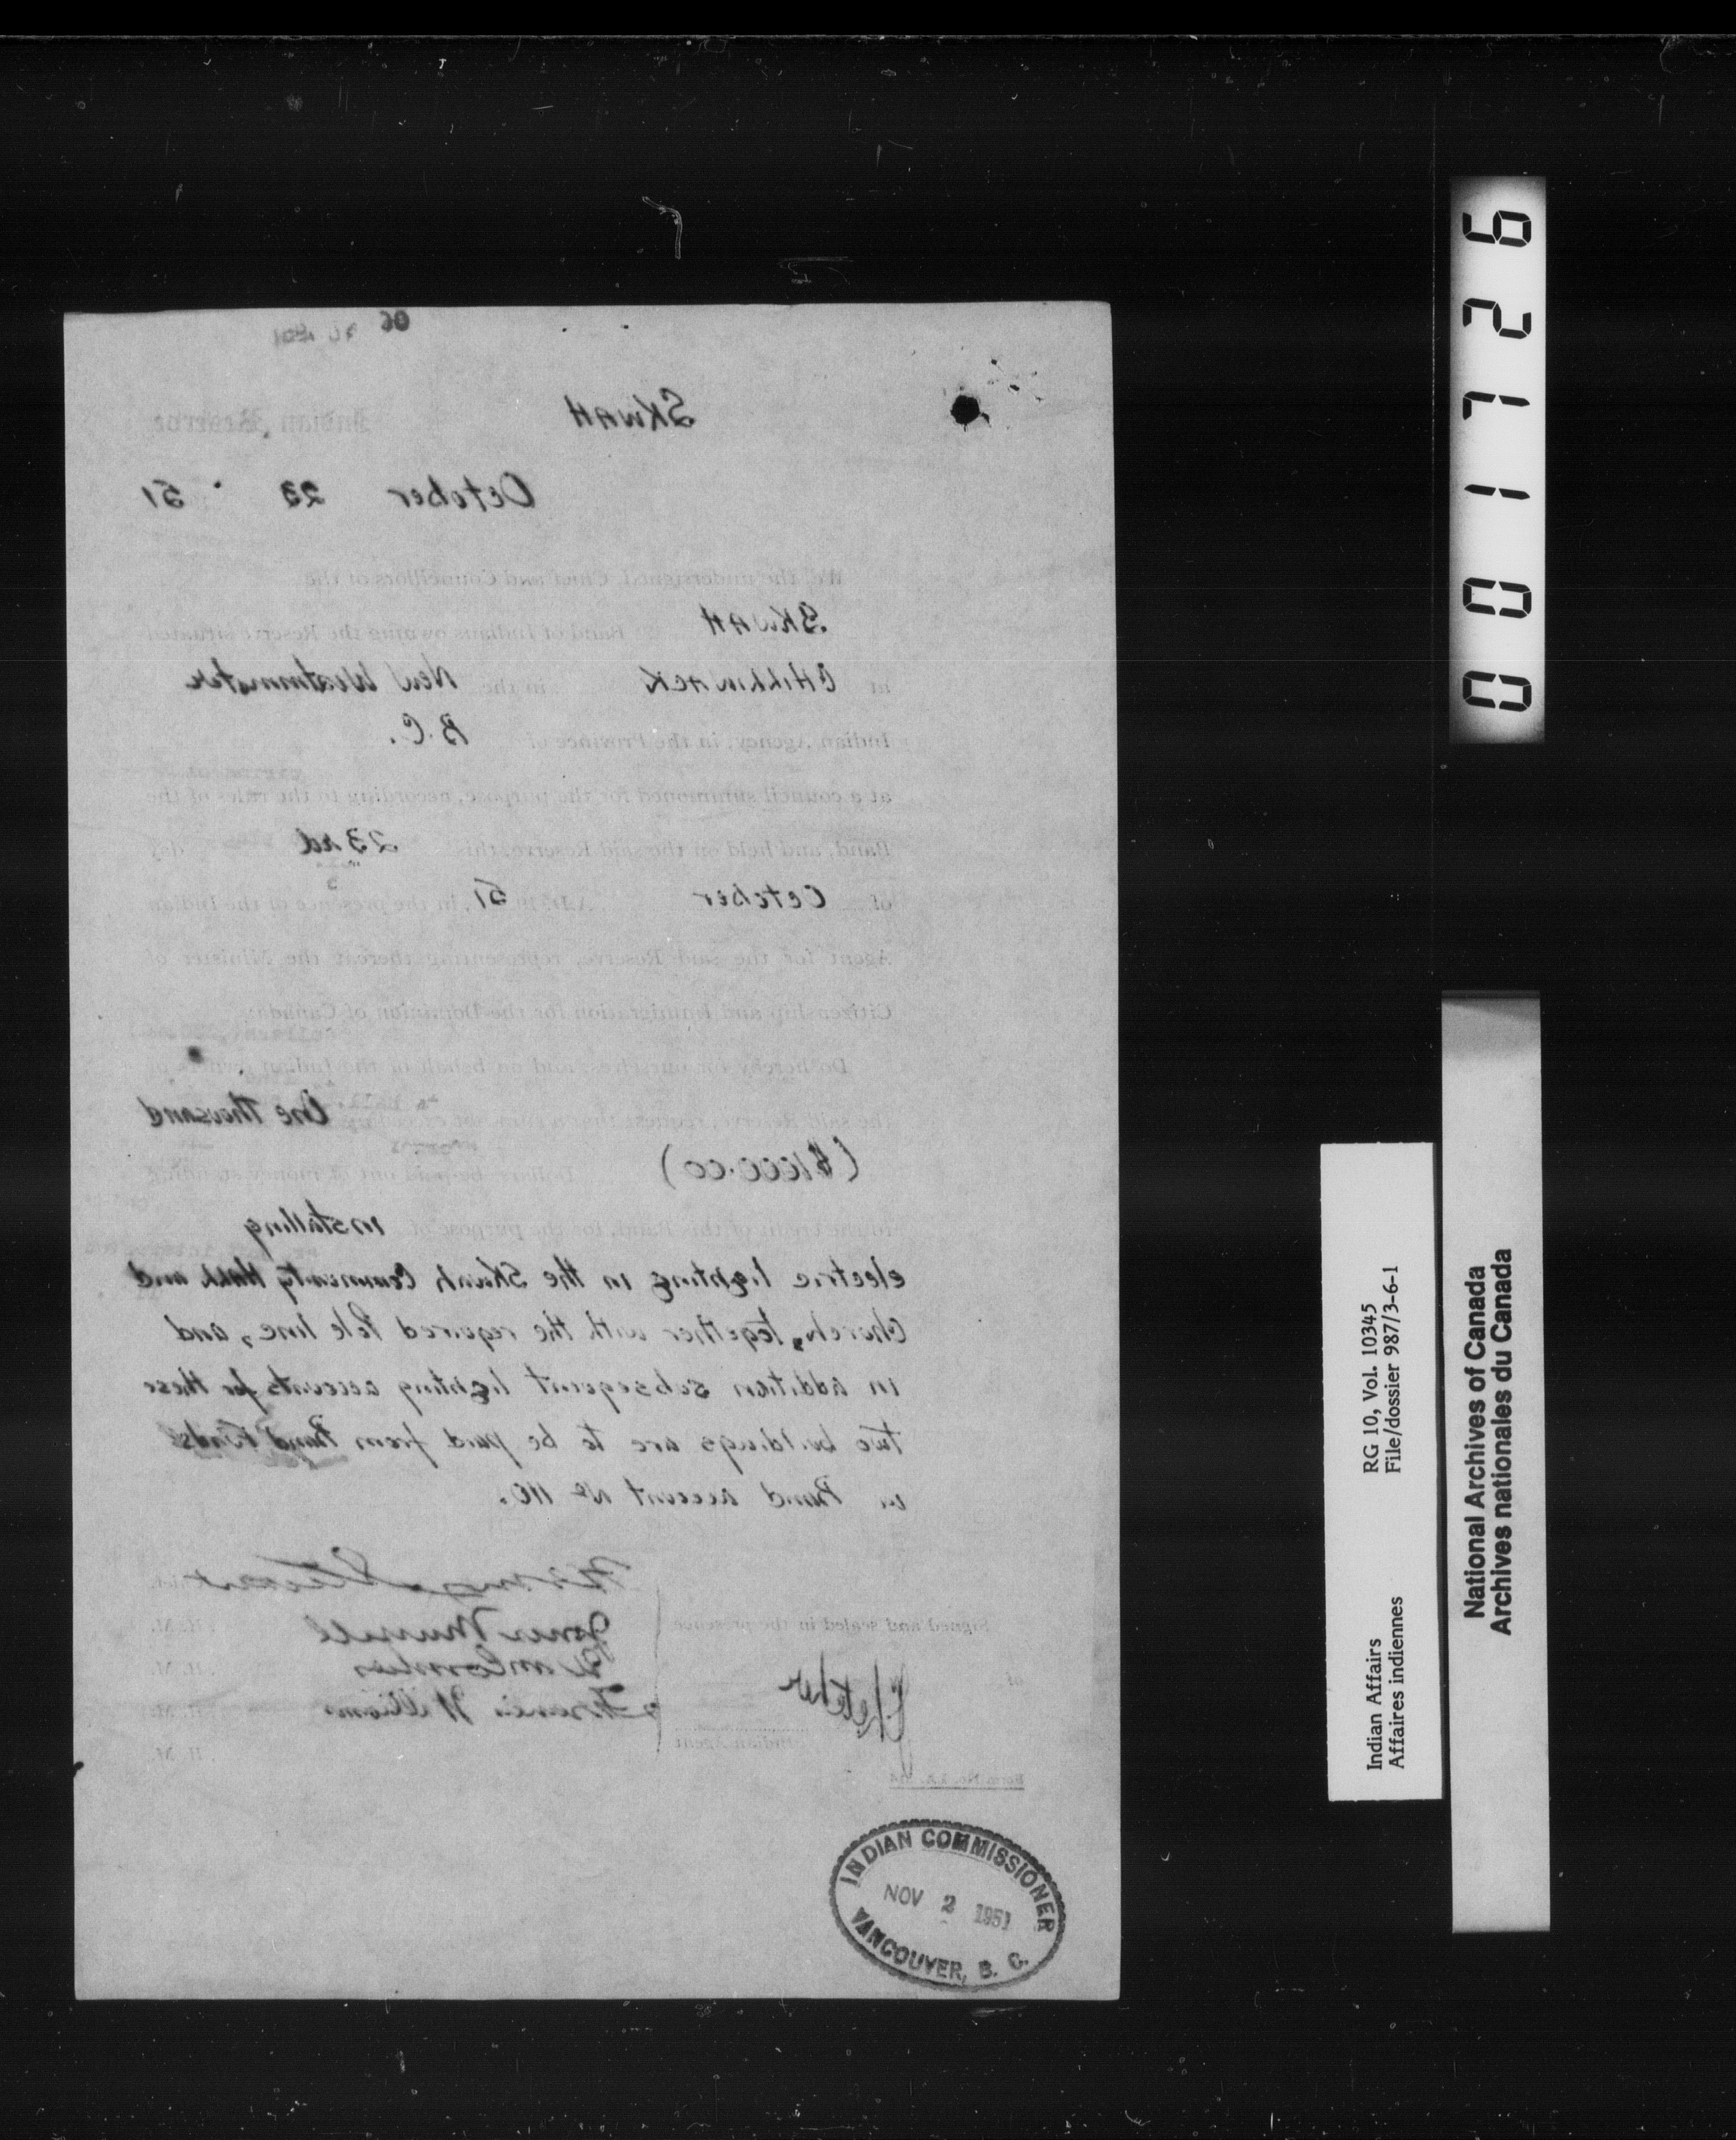 SKWAH
Indian Reserve
October 23 51
We, the undersigned, Chief and Councillors of the
SKWAH Band of Indians owning the Reserve situated
at CHILLIWACK in the New Westminster
Indian Agency, in the Province of B.C.
at a council summoned for the purpose, according to the rules of the
Band, and held on the said Reserve, this 23rd day
of October A.D. 19 51, in the presence of the Indian
Agent for the said Reserve, representing thereat the Minister of
Citizenship and Immigration for the Dominion of Canada,
Do hereby for ourselves and on behalf of the Indian owners of
the said Reserve, request that a sum not exceeding One Thousand
($1000.00) Dollars be paid out of moneys standing
to the credit of this Band, for the purpose of installing
electric lighting in the Skwah Community Hall and
Church, together with the required Pole line, and,
in addition subsequent lighting accounts for these
two buildings are to be paid from Band Funds
in Band account No 110.
Signed and sealed in the presence
of
Indian Agent
James Mussell
Wm Combes
Francis Williams
INDIAN COMMISSIONER
NOV 2 1951
VANCOUVER, B. C.
001726
RG 10, Vol. 10345
File/dossier 987/3-6-1
Indian Affairs
Affaires indiennes
National Archives of Canada
Archives nationales du Canada